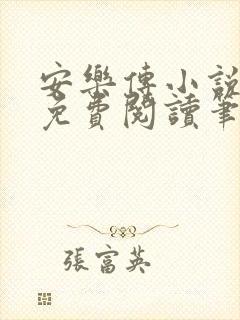 安樂傳小說
免費閱讀筆
張富英